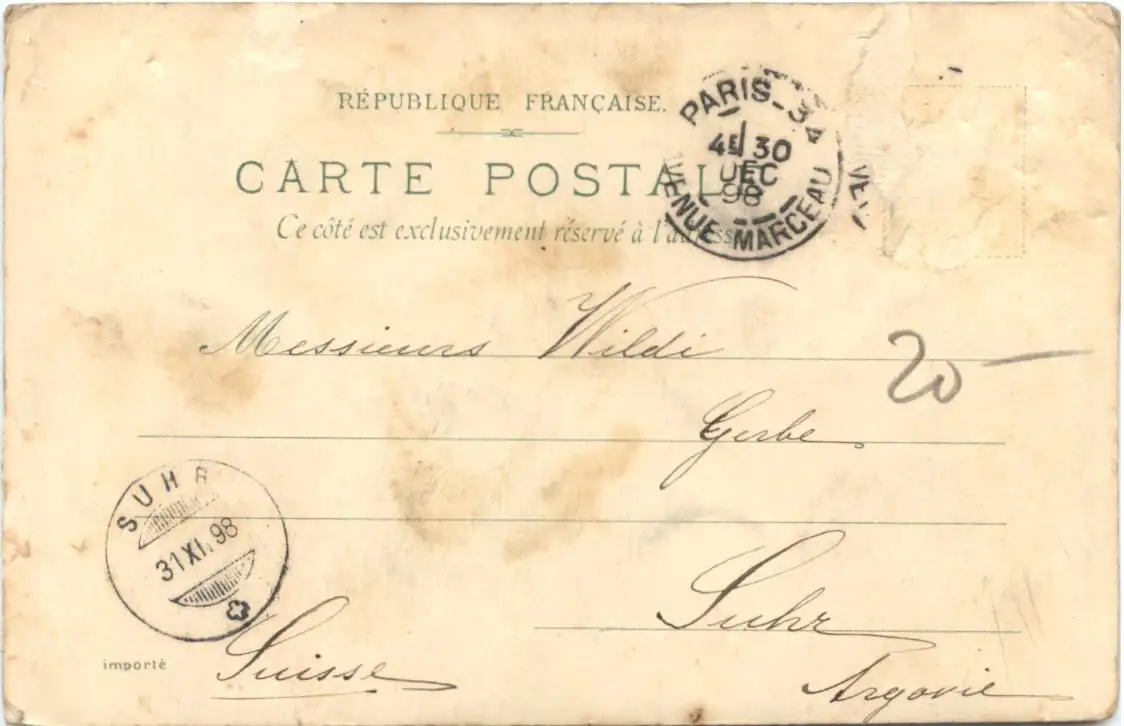 RÉPUBLIQUE FRANÇAISE.
CARTE POSTALE
Ce côté est exclusivement réservé à l'adresse
PARIS-34
4E 30
DEC
98
AVENUE MARCEAU
Messieurs Wildi
20
Gerbe.
SUHR
31 XI. 98
Suhr
importé
Suisse
Argovie